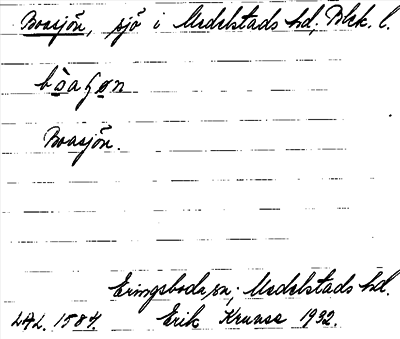 Boasjön, sjö i Medelstads hd, Blek. l.
Boasjön.
Eringsboda sn; Medelstads hd.
LAL. 1584. Erik Kruuse 1932.